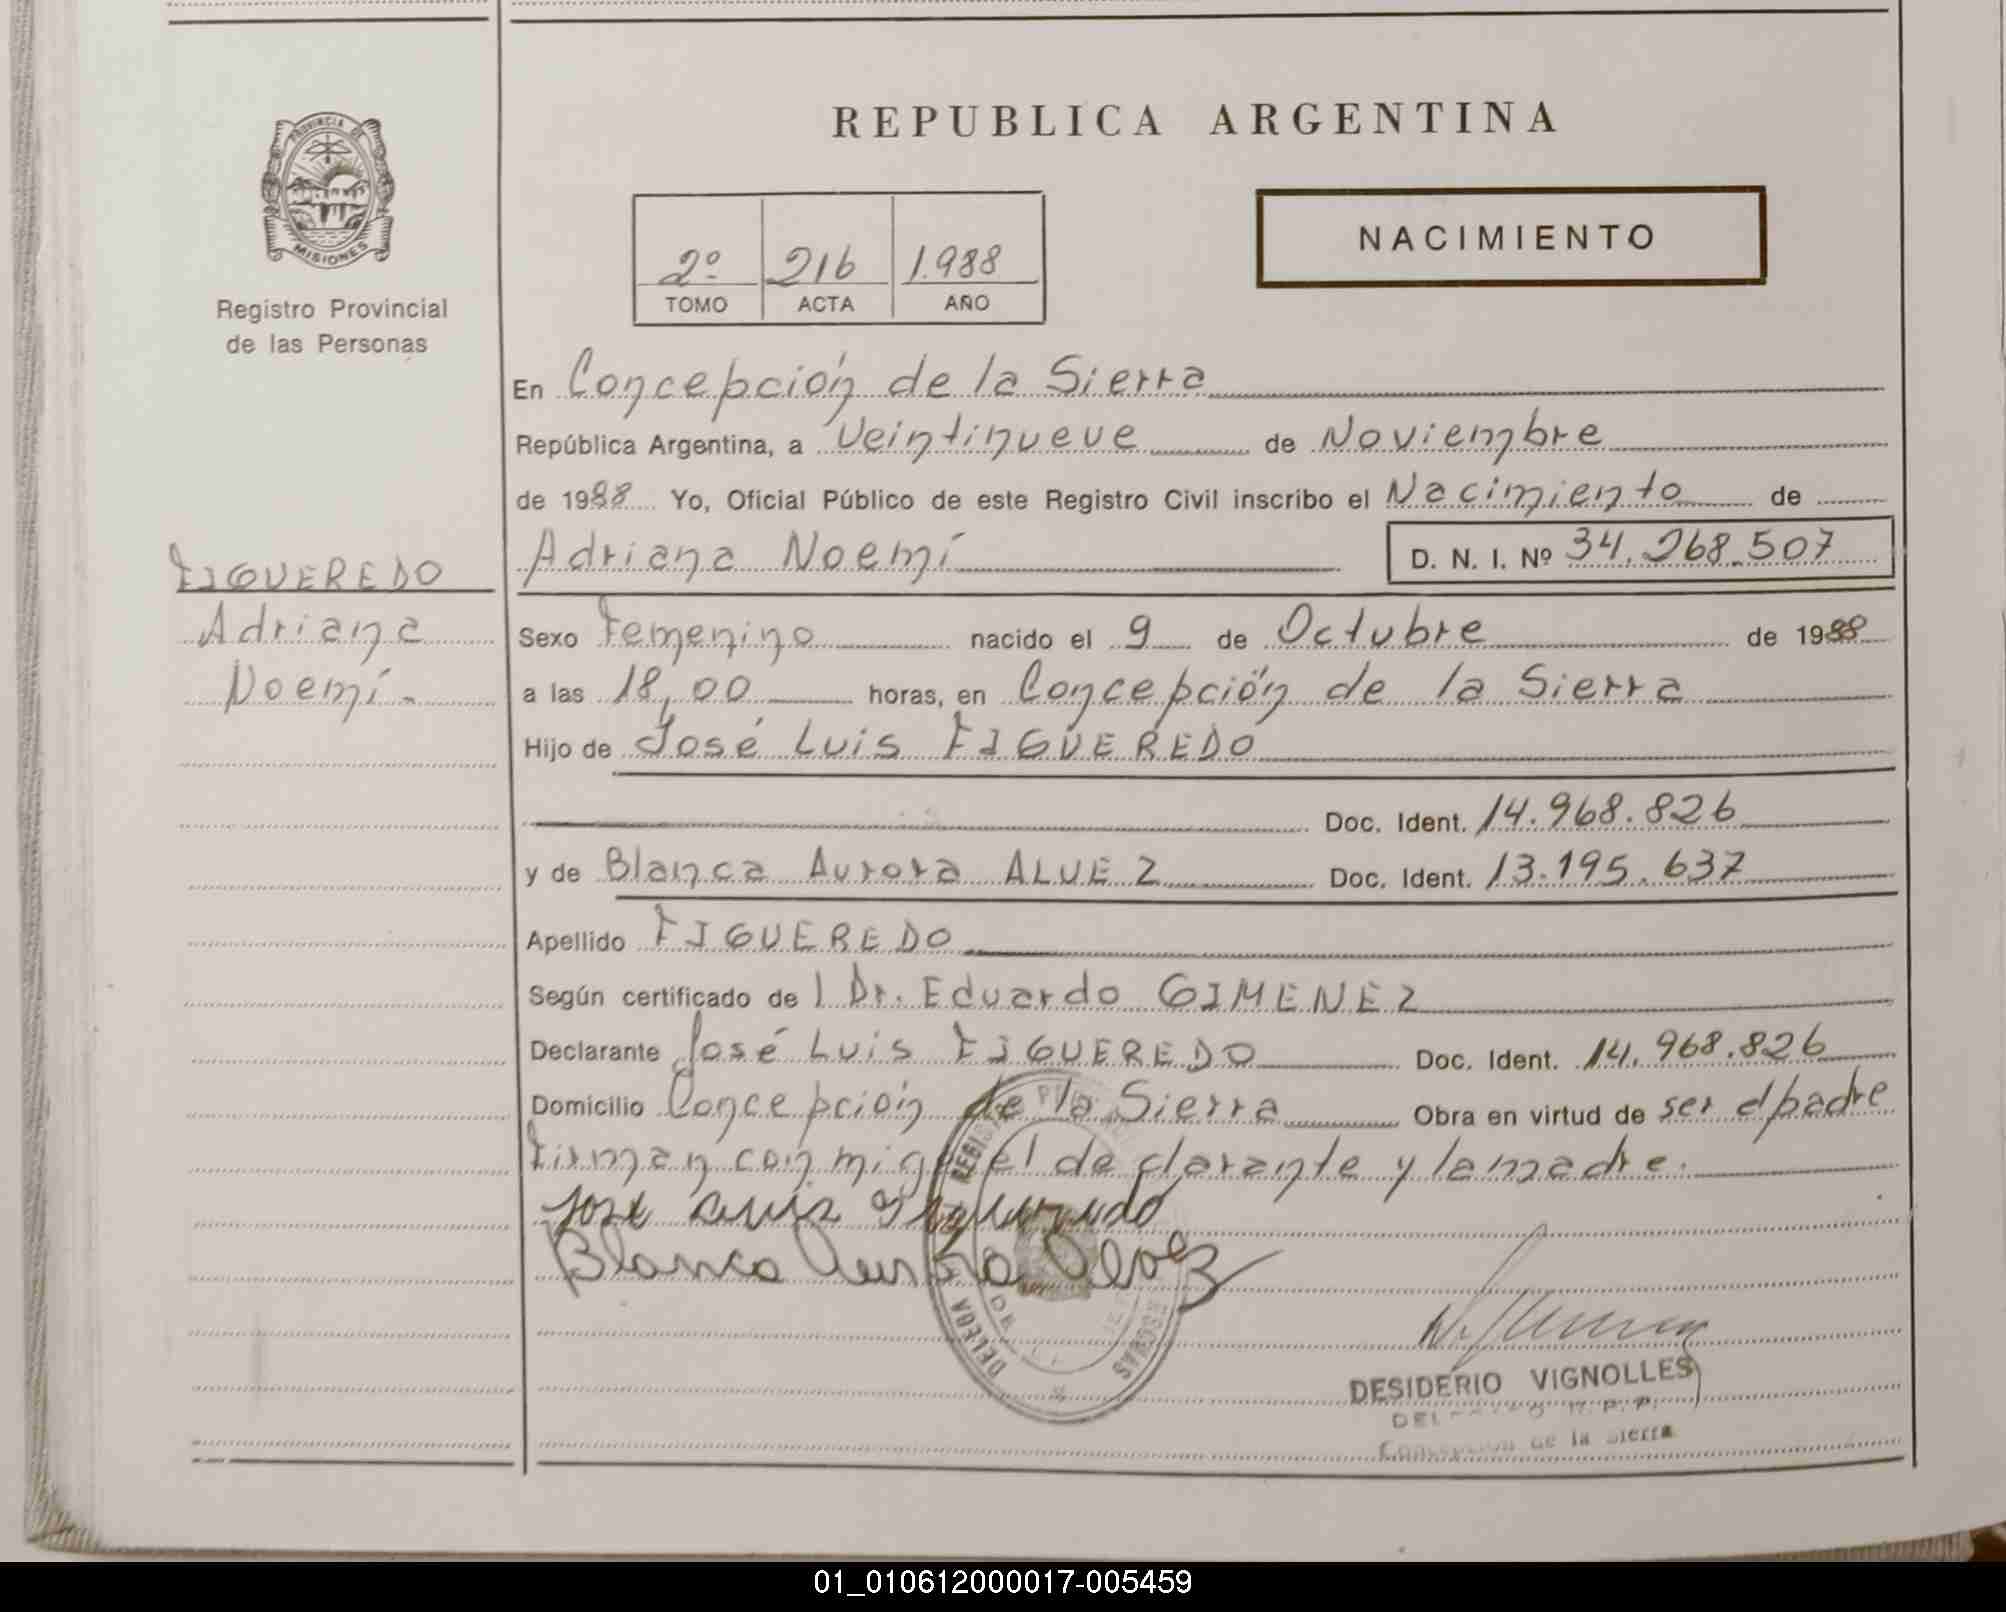 REPUBLICA ARGENTINA
PROVINCIA DE MISIONES
Registro Provincial
de las Personas
2º 216 1.988
TOMO ACTA AÑO
NACIMIENTO
En Concepción de la Sierra
República Argentina, a Veintinueve de Noviembre
de 1988 Yo, Oficial Público de este Registro Civil inscribo el Nacimiento de
Adriana Noemí D. N. I. Nº 34.268.507
FIGUEREDO
Adriana
Noemí.-
Sexo Femenino nacido el 9 de Octubre de 1988
a las 18,00 horas, en Concepción de la Sierra
Hijo de José Luis FIGUEREDO
Doc. Ident. 14.968.826
y de Blanca Aurora ALVEZ Doc. Ident. 13.195.637
Apellido FIGUEREDO
Según certificado de l Dr. Eduardo GIMENEZ
Declarante José Luis FIGUEREDO Doc. Ident. 14.968.826
Domicilio Concepción de la Sierra Obra en virtud de ser el padre
Firman conmigo el declarante y la madre.
Jose Luis Figueredo
Blanca Aurora Alvez
DESIDERIO VIGNOLLES
R. P. P.
Concepcion de la Sierra
01_010612000017-005459